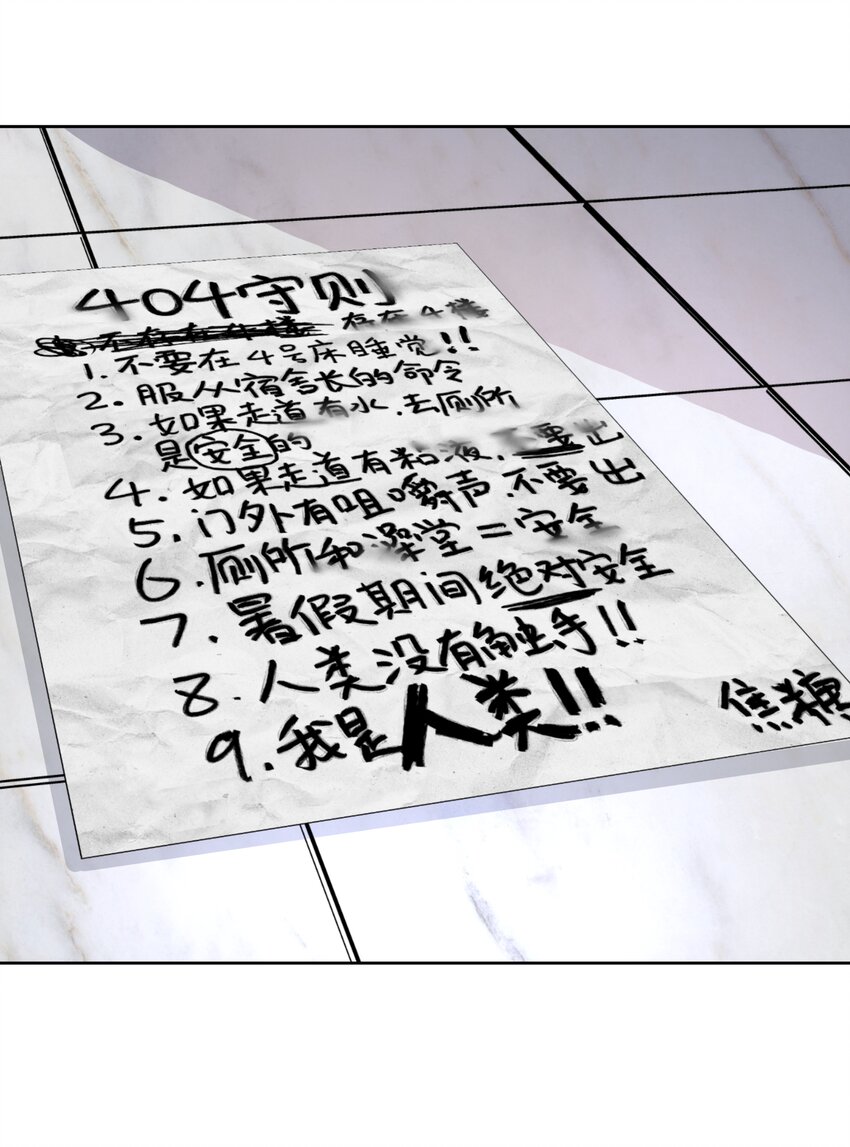 404守则
不存在4楼 存在4楼
1.不要在4号床睡觉!!
2.服从宿舍长的命令
3.如果走道有水,去厕所
是安全的
4.如果走道有粘液,不要出
5.门外有咀嚼声.不要出
6.厕所和澡堂=安全
7.暑假期间绝对安全
8.人类没有触手!!
9.我是人类!!
焦糖